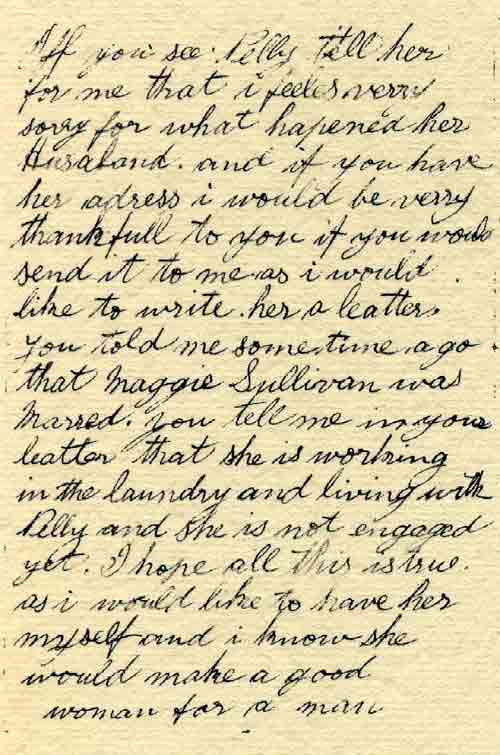 If you see Pelly tell her
for me that i feeles verry
sorry for what hapened her
Husaland. and if you have
her adress i would be verry
thankfull to you if you would
send it to me as i would
like to write her a leatter.
you told me some time ago
that Maggie Sullivan was
Marred. you tell me in your
leatter that she is working
in the laundry and living with
Pelly and she is not engaged
yet. I hope all this is true.
as i would like to have her
myself and i know she
would make a good
woman for a man